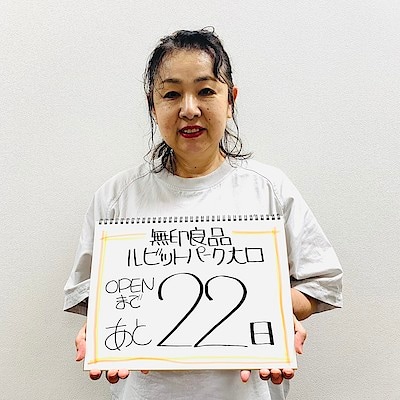 無印良品
ルビットパーク大口
OPEN
まで
あと22日